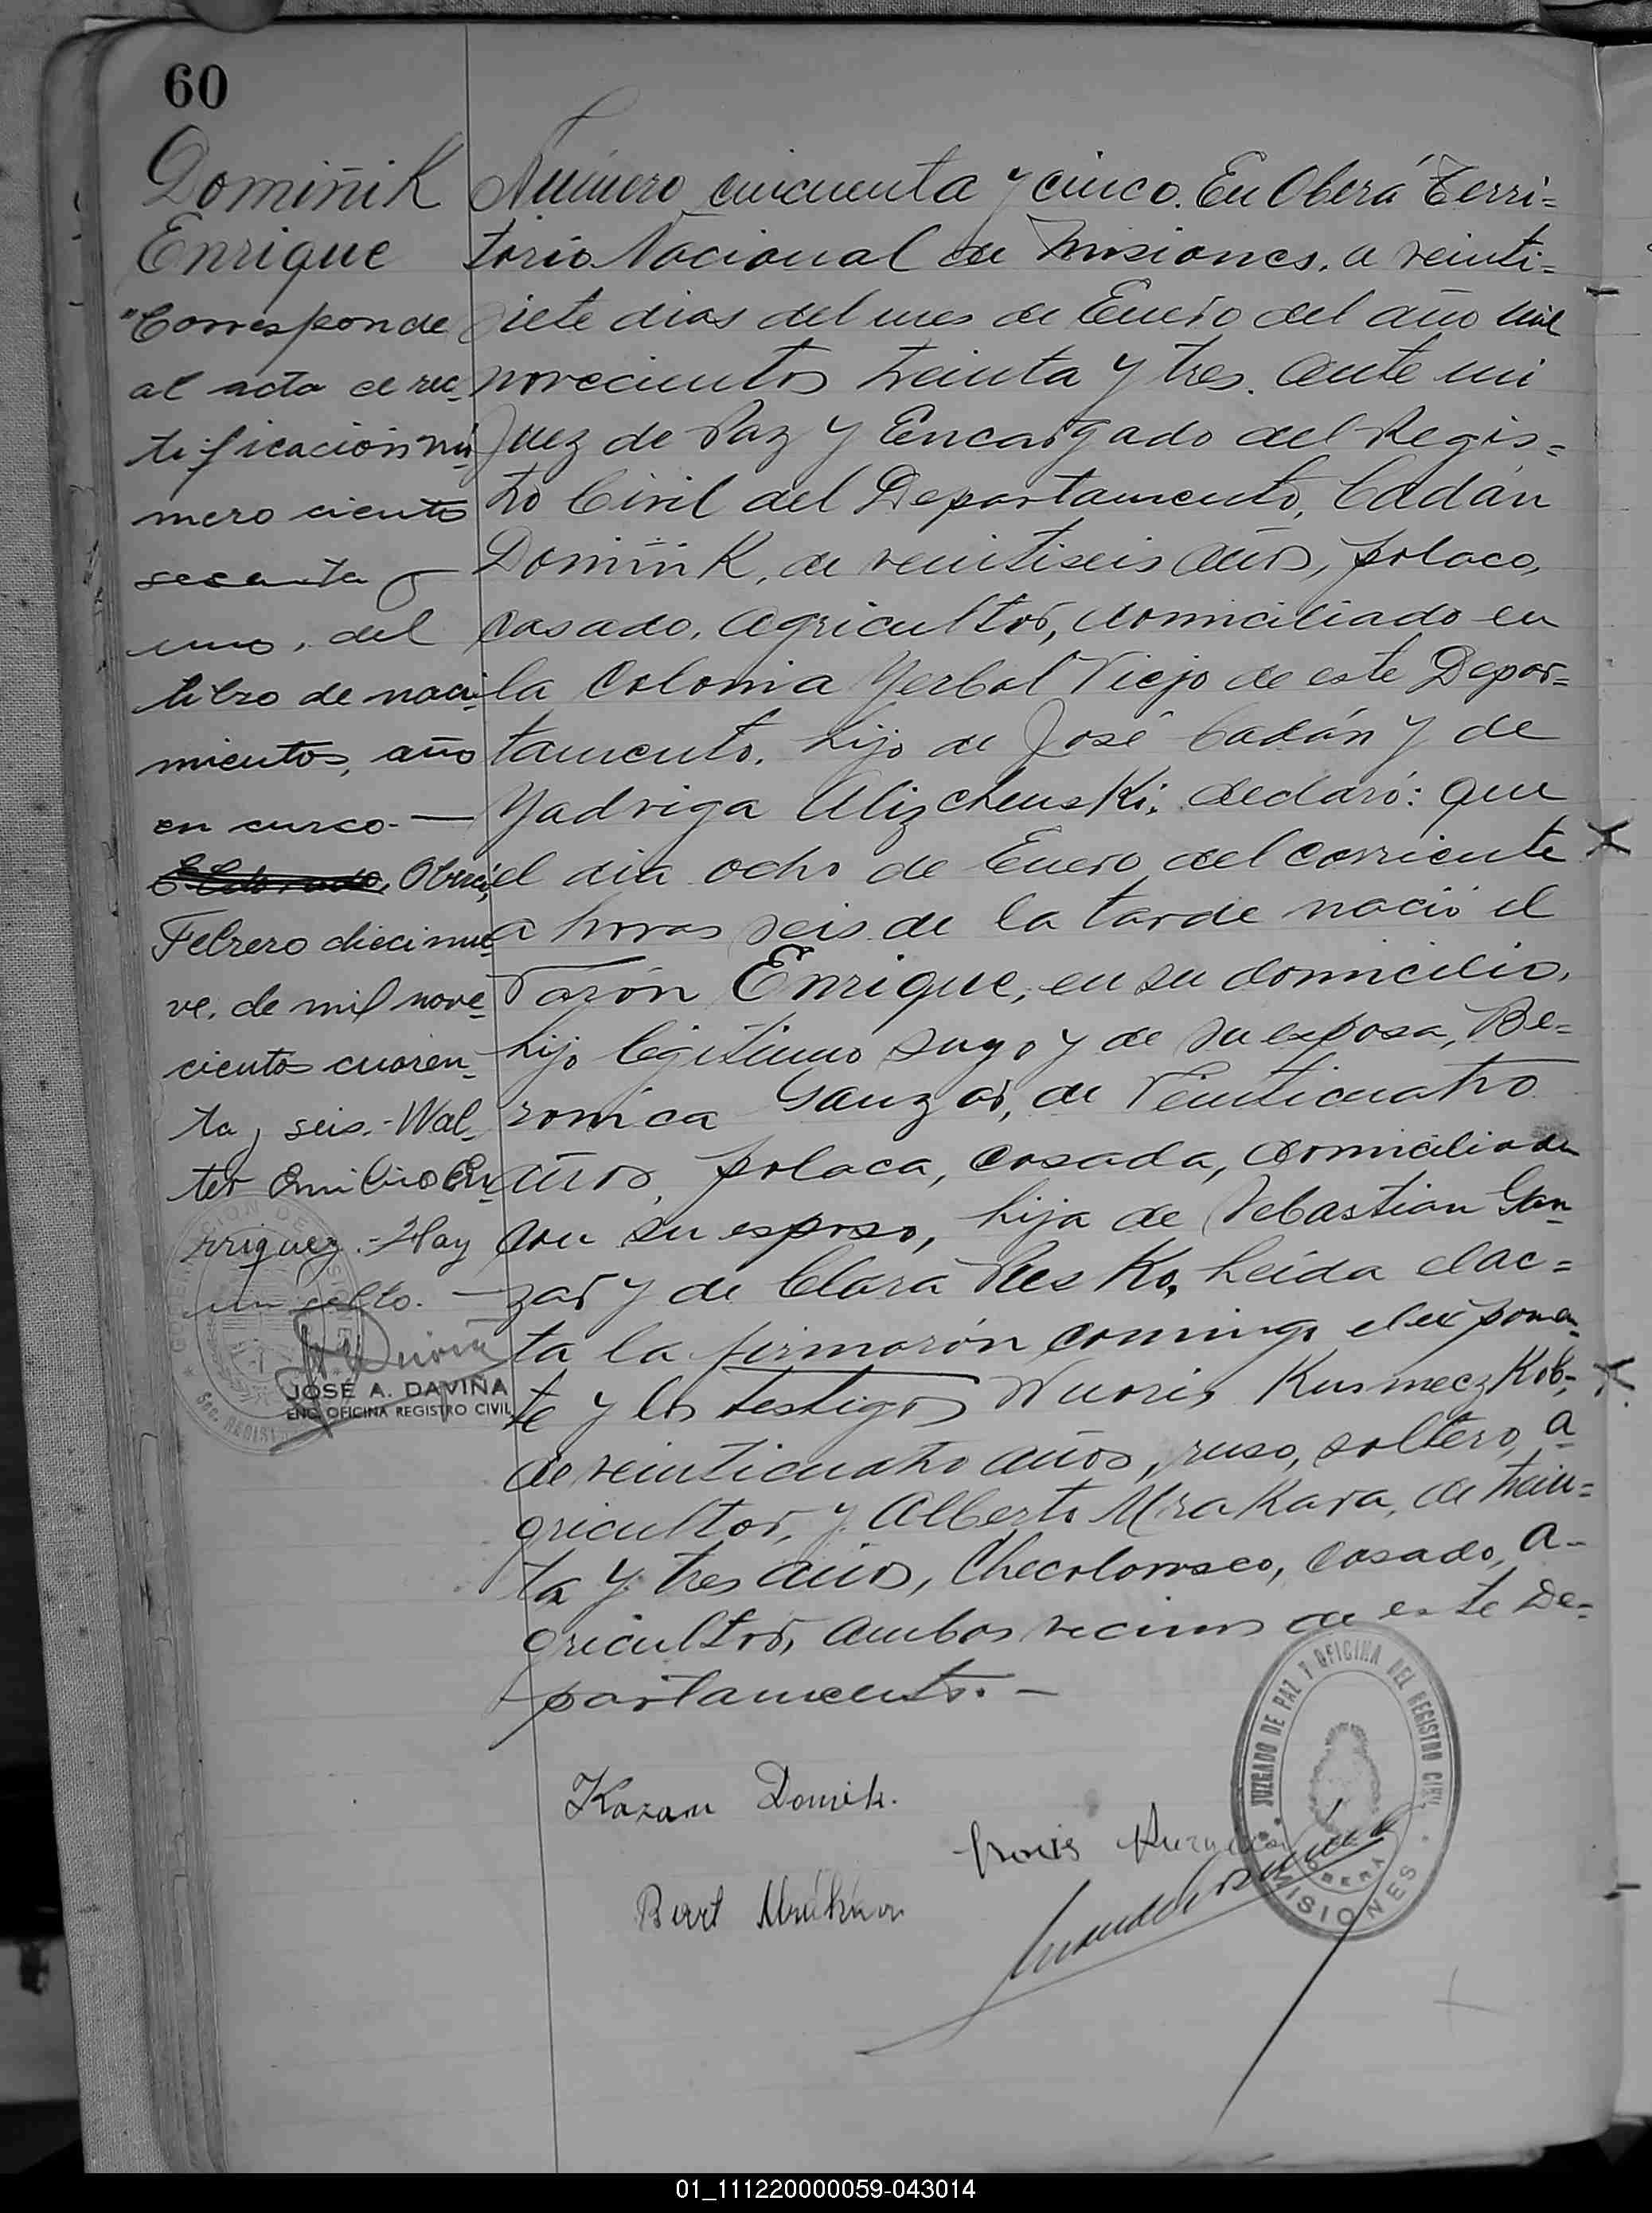 60
Domiñik
Enrique
"Corresponde
al acta de rec-
tificación nú-
mero ciento
secenta y
uno, del
libro de naci-
mientos, año
en curso.—
Oberá,
Febrero diecinue-
ve, de mil nove-
cientos cuaren-
ta y seis.- Wal-
ter Emilio En-
rriquez.- Hay
un sello.—
JOSÉ A. DAVIÑA
ENC. OFICINA REGISTRO CIVIL
Número cincuenta y cinco. En Oberá Terri=
torio Nacional de Misiones, a veinti=
siete dias del mes de Enero del año mil
novecientos treinta y tres. Ante mi
Juez de Paz y Encargado del Regis=
tro Civil del Departamento, Cadán
Domiñik, de veintiseis años, polaco,
casado, agricultor, domiciliado en
la Colonia Yerbal Viejo de este Depar=
tamento, hijo de José Cadán y de
Yadviga Alizchenski; declaró: que
el dia ocho de Enero del corriente
a horas seis de la tarde nació el
varón Enrique, en su domicilio,
hijo legitimo suyo y de su esposa, Be=
ronica Ganzar, de veinticuatro
años, polaca, casada, domiciliada
con su esposo, hija de Sebastian Gan-
zar y de Clara Resko. Leida el ac=
ta la firmarón conmigo el exponen-
te y los testigos Nuoris Kusmeczkob-,
de veinticuatro años, ruso, soltero, a-
gricultor, y Alberto Mrakava, de trein=
ta y tres años, Checolovaco, casado, a-
gricultor, ambos vecinos de este De=
partamento.—
Kazan Domik.
JUZGADO DE PAZ Y OFICINA DEL REGISTRO CIVIL
OBERA
MISIONES
01_111220000059-043014